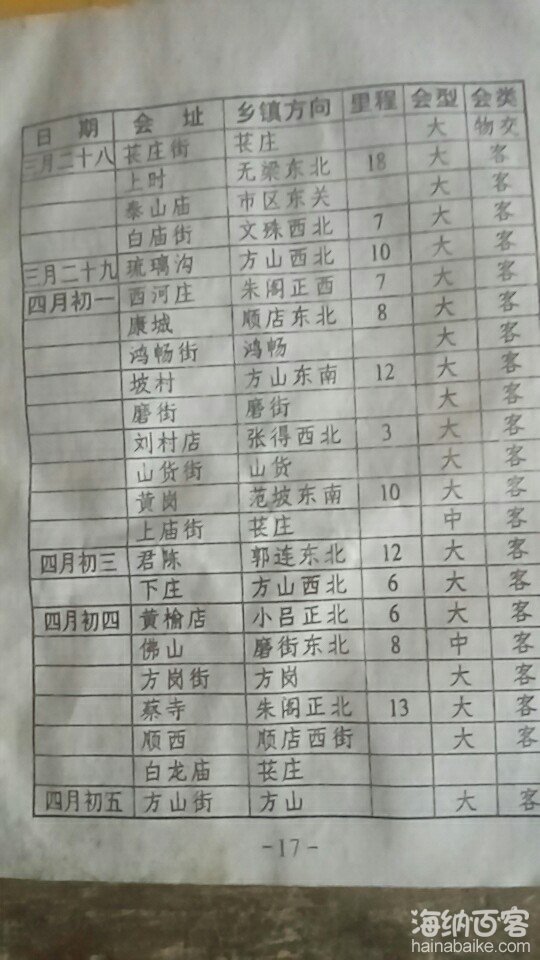 日 期 会 址 乡镇方向 里程 会型 会类
三月二十八 苌庄街 苌庄 大 物交
上时 无梁东北 18 大 客
泰山庙 市区东关 大 客
白庙街 文殊西北 7 大 客
三月二十九 琉璃沟 方山西北 10 大 客
四月初一 西河庄 朱阁正西 7 大 客
康城 顺店东北 8 大 客
鸿畅街 鸿畅 大 客
坡村 方山东南 12 大 客
磨街 磨街 大 客
刘村店 张得西北 3 大 客
山货街 山货 大 客
黄岗 范坡东南 10 大 客
上庙街 苌庄 中 客
四月初三 君陈 郭连东北 12 大 客
下庄 方山西北 6 大 客
四月初四 黄榆店 小吕正北 6 大 客
佛山 磨街东北 8 中 客
方岗街 方岗 大 客
蔡寺 朱阁正北 13 大 客
顺西 顺店西街 大 客
白龙庙 苌庄 客
四月初五 方山街 方山 大 客
-17-
海纳百客
hainabaike.com